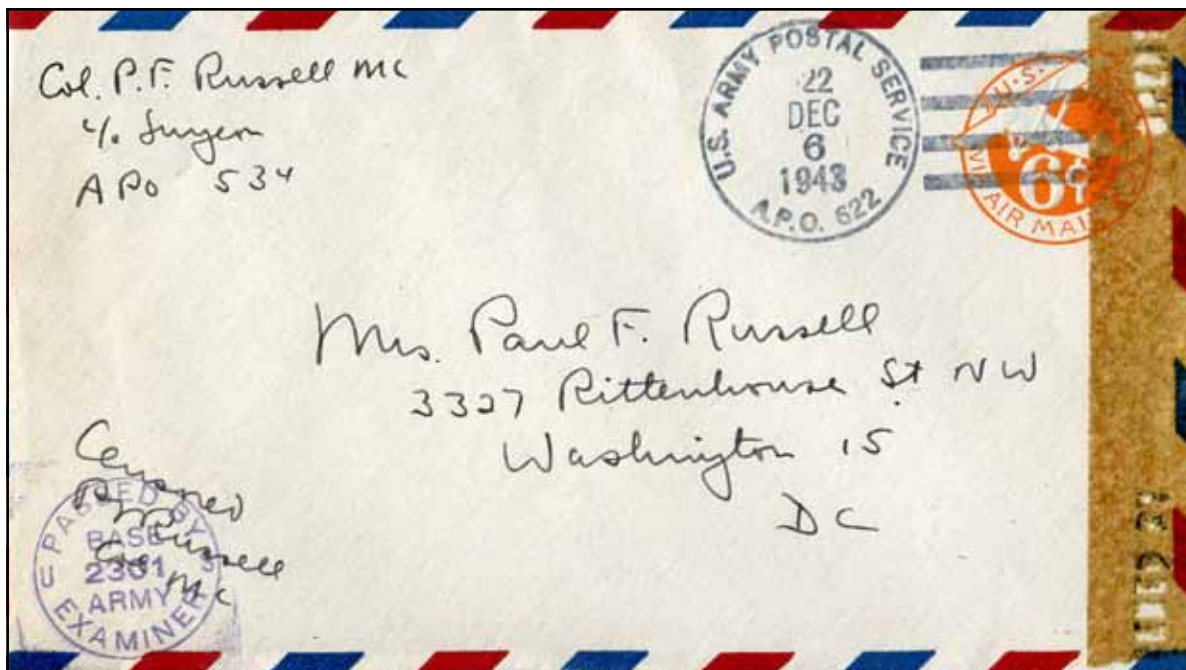 Col. P.F. Russell MC
c/o Surgeon
APO 534
U.S. ARMY POSTAL SERVICE
22
DEC
6
1943
A.P.O. 622
U.S.
6¢
VIA AIR MAIL
Mrs. Paul F. Russell
3327 Rittenhouse St NW
Washington 15
DC
Censored
Russell
Col MC
PASSED BY
BASE
2361
ARMY
EXAMINER
U S